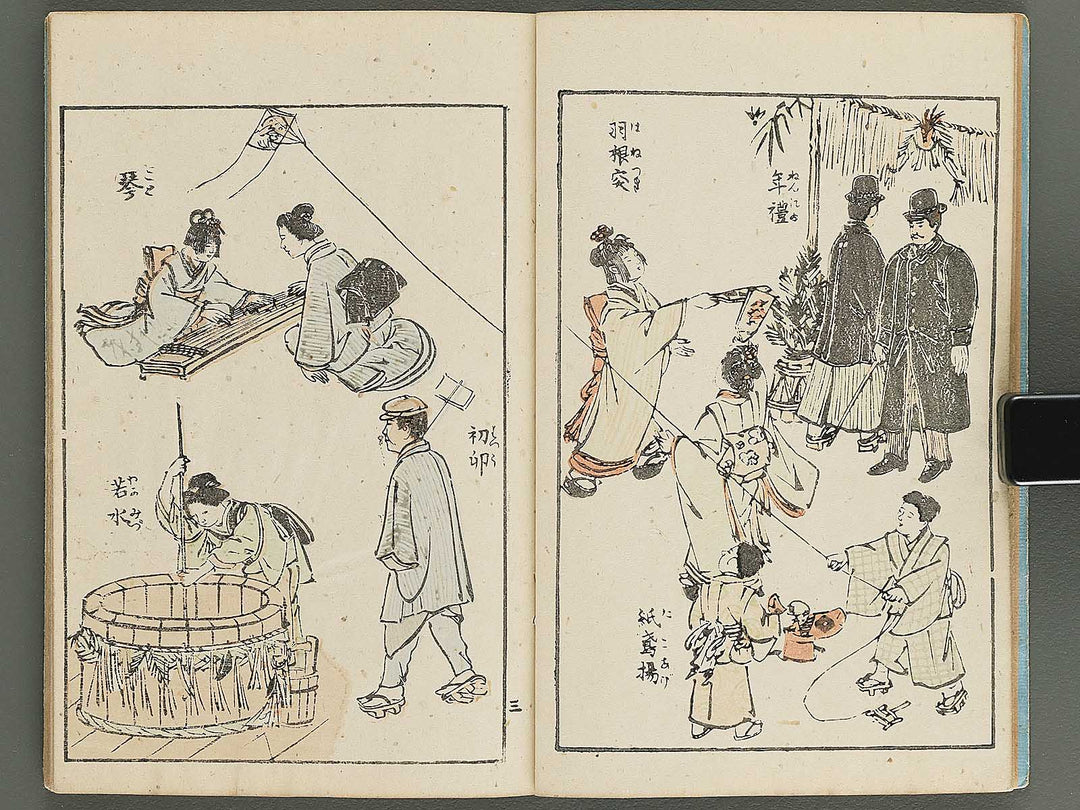 年禮
ねんにゐ
羽根突
はねつき
紙鳶揚
たこあげ
琴
こと
初卯
はつう
若水
わかみづ
三